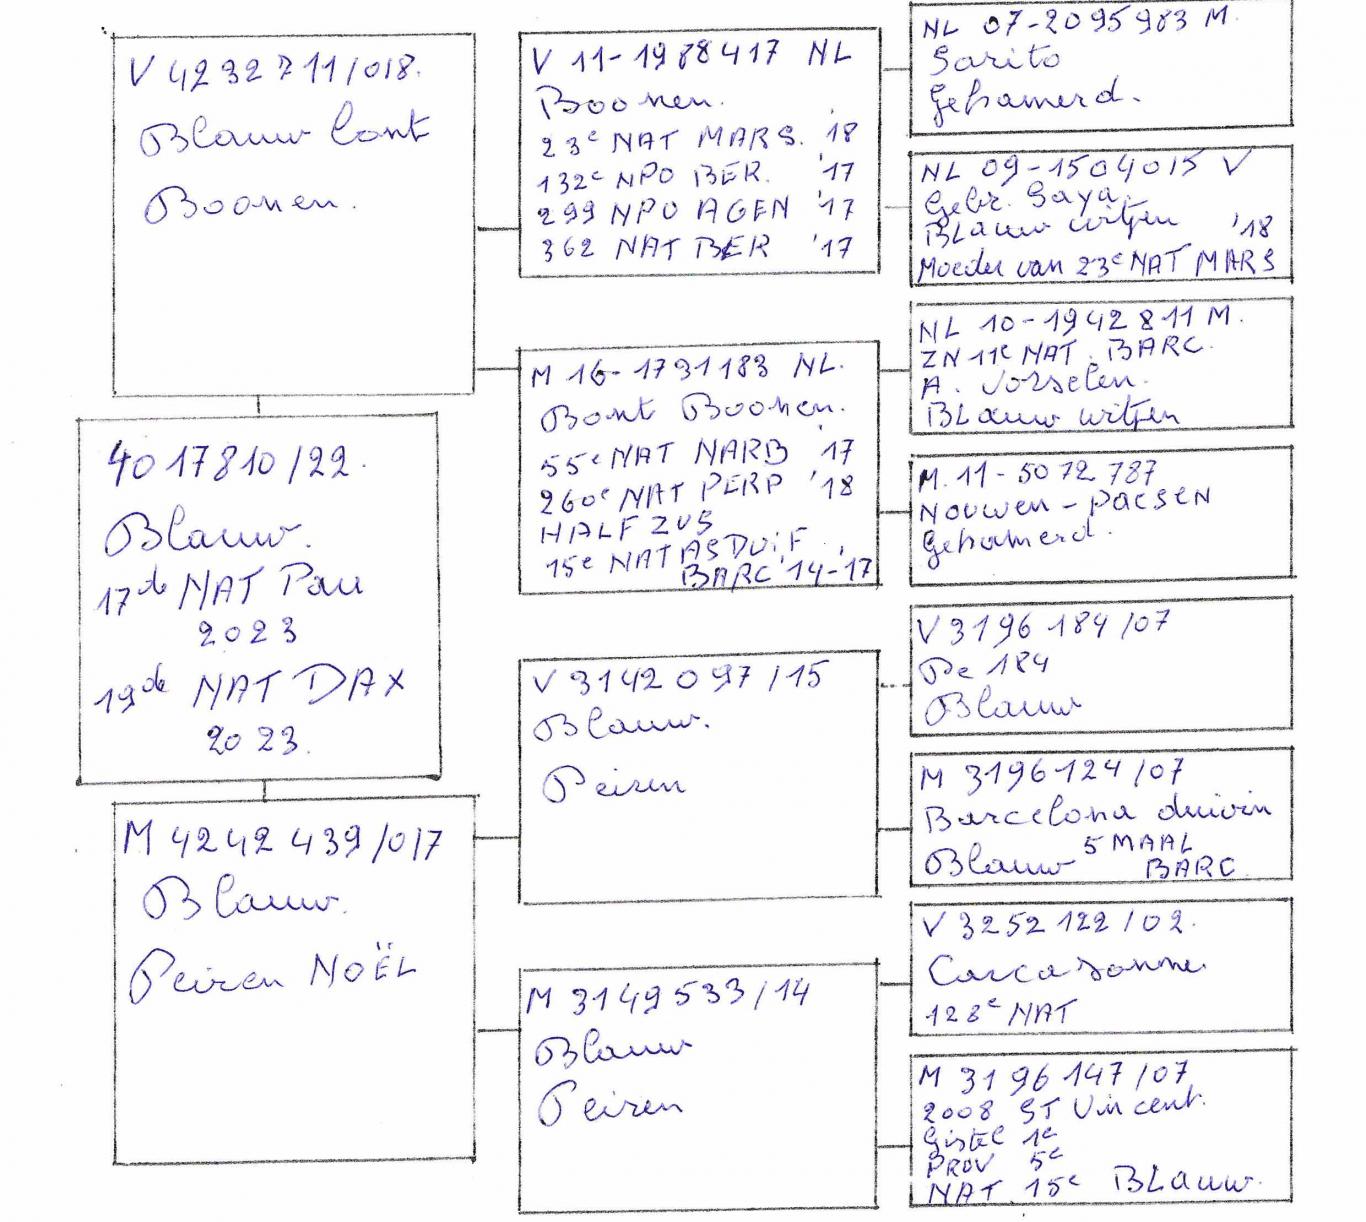 V 4232711/018.
Blauw Cont
Boonen.
4017810/22.
Blauw.
17de NAT Pau
2023
19de NAT DAX
2023.
M 4242439/017
Blauw.
Peiren NOËL
V 11-1988417 NL
Boonen.
23e NAT MARS. '18
132e NPO BER. '17
299 NPO AGEN '17
362 NAT BER '17
M 16-1791183 NL.
Bont Boonen.
55e NAT NARB '17
260e NAT PERP '18
HALF ZUS
15e NAT ASDUIF
BARC '14-17
V 3142097/15
Blauw.
Peiren
M 3149533/14
Blauw
Peiren
NL 07-2095983 M.
Sarito
Gehamerd.
NL 09-1504015 V
Gebr. Saya.
BLauw witpen '18
Moeder van 23e NAT MARS
NL 10-1942811 M.
ZN 11e NAT. BARC.
A. Vorselen.
BLauw witpen
M. 11-5072787
Nouwen-PAESEN
Gehamerd.
V 3196184/07
De 184
Blauw
M 3196124/07
Barcelona duivin
5 MAAL
Blauw BARC.
V 3252122/02.
Carcasonne
128e NAT
M 3196147/07
2008 ST Vincent.
Gistel 1e
PROV 5e
NAT. 15e BLauw.